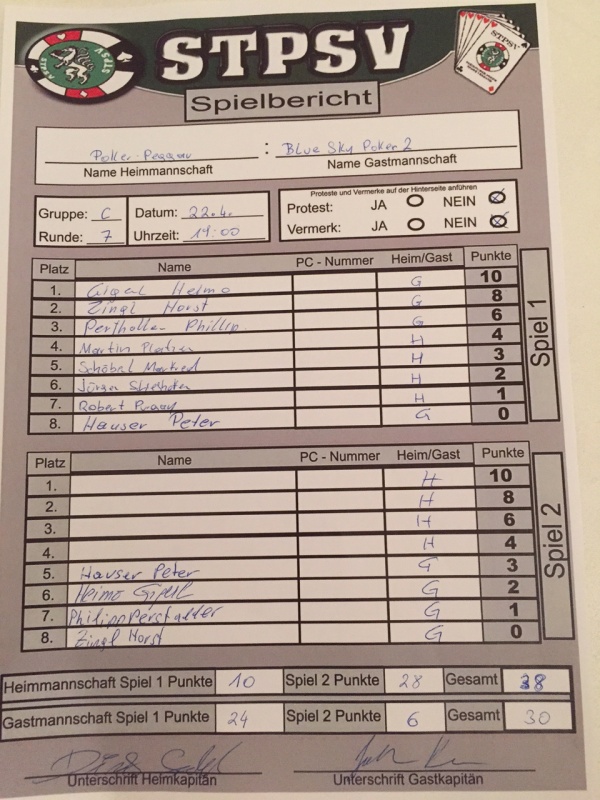 STPSV
STPSV
Spielbericht
Poller-Peggau : Blue Sky Poker 2
Name Heimmannschaft Name Gastmannschaft
Proteste und Vermerke auf der Hinterseite anführen
Gruppe: C Datum: 22.4. Protest: JA NEIN
Runde: 7 Uhrzeit: 19:00 Vermerk: JA NEIN
Platz Name PC - Nummer Heim/Gast Punkte
1. Heimo G 10
2. Zingl Horst G 8
3. Phillip G 6
4. Martin H 4
5. Schöbel Manfred H 3
6. Jürgen H 2
7. Robert H 1
8. Hauser Peter G 0
Spiel 1
Platz Name PC - Nummer Heim/Gast Punkte
1. H 10
2. H 8
3. H 6
4. H 4
5. Hauser Peter G 3
6. Heimo G 2
7. Philipp G 1
8. Zingl Horst G 0
Spiel 2
Heimmannschaft Spiel 1 Punkte 10 Spiel 2 Punkte 28 Gesamt 38
Gastmannschaft Spiel 1 Punkte 24 Spiel 2 Punkte 6 Gesamt 30
Unterschrift Heimkapitän Unterschrift Gastkapitän